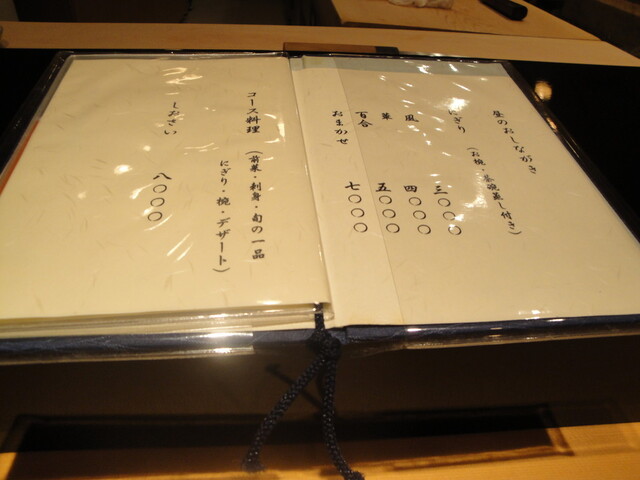 昼のおしながき
にぎり (お椀・茶碗蒸し付き)
風 三〇〇〇
葉 四〇〇〇
百合 五〇〇〇
おまかせ 七〇〇〇
コース料理 (前菜・刺身・旬の一品
にぎり・椀・デザート)
しおさい 八〇〇〇